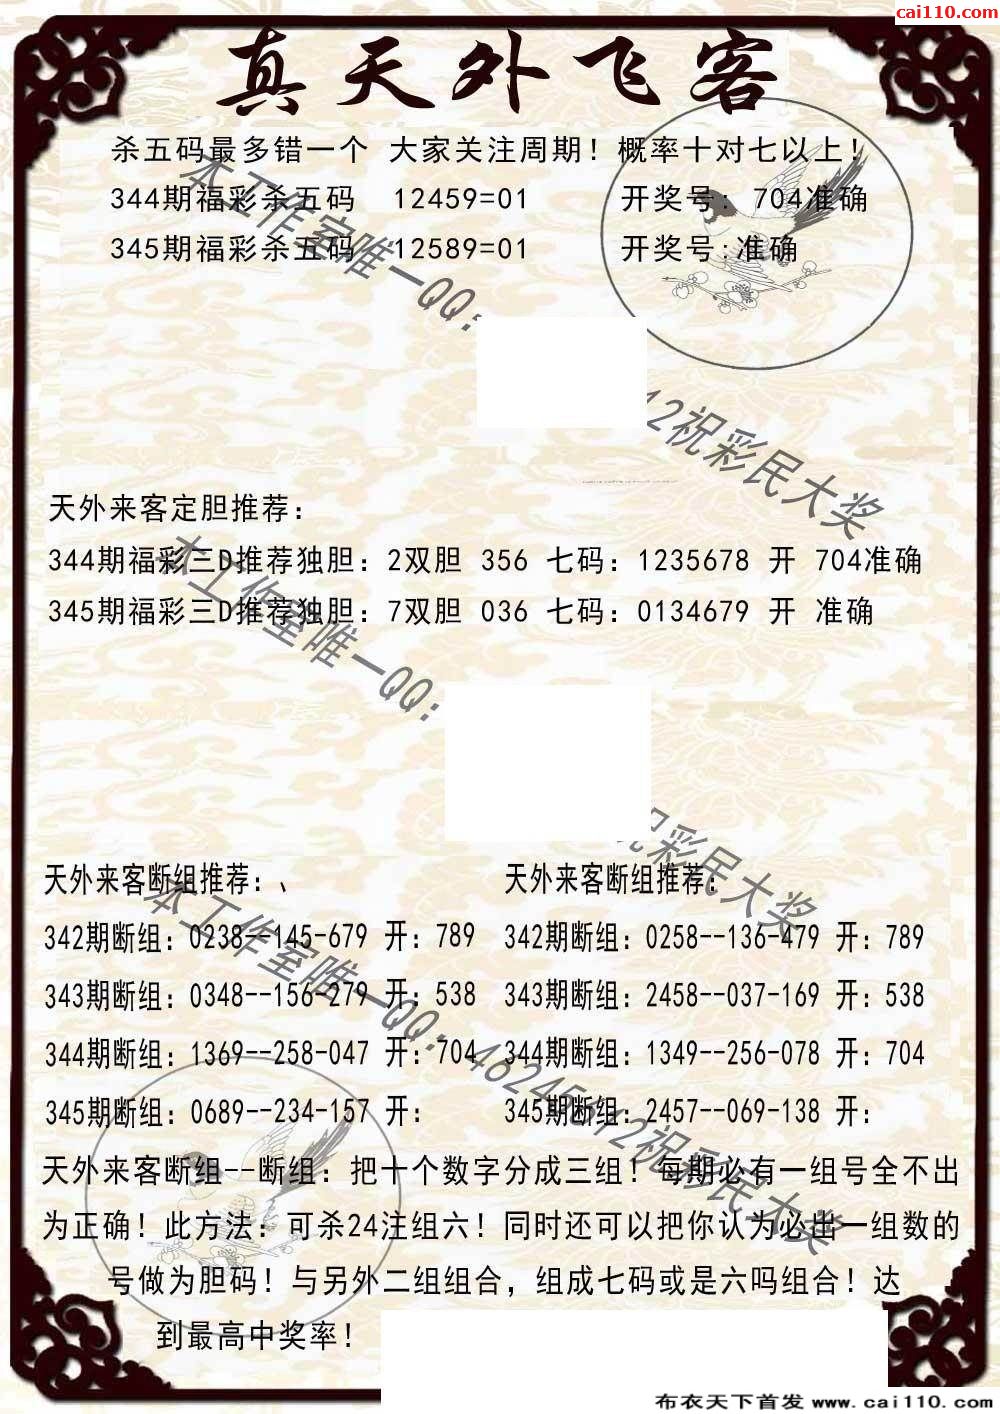 cai110.com
真天外飞客
杀五码最多错一个 大家关注周期！概率十对七以上！
344期福彩杀五码 12459=01 开奖号: 704准确
345期福彩杀五码 12589=01 开奖号:准确
本工作室唯一QQ:
12祝彩民大奖
天外来客定胆推荐：
344期福彩三D推荐独胆：2双胆 356 七码：1235678 开 704准确
345期福彩三D推荐独胆：7双胆 036 七码：0134679 开 准确
本工作室唯一QQ:
祝彩民大奖
天外来客断组推荐：、 天外来客断组推荐：
342期断组：0238--145-679 开：789 342期断组：0258--136-479 开：789
343期断组：0348--156-279 开：538 343期断组：2458--037-169 开：538
344期断组：1369--258-047 开：704 344期断组：1349--256-078 开：704
345期断组：0689--234-157 开： 345期断组：2457--069-138 开：
本工作室唯一QQ:46245612祝彩民大奖
天外来客断组--断组：把十个数字分成三组！每期必有一组号全不出
为正确！此方法：可杀24注组六！同时还可以把你认为必出一组数的
号做为胆码！与另外二组组合，组成七码或是六吗组合！达
到最高中奖率！
布衣天下首发 www.cai110.com